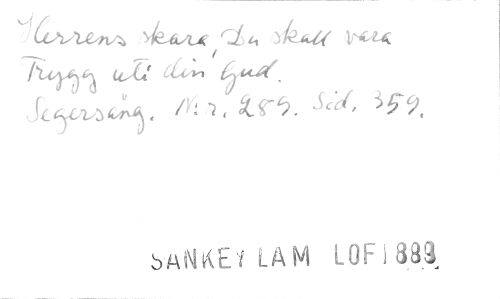 Herrens skara, Du skall vara
Trygg uti din Gud.
Segersång. N:r. 289. Sid. 359.
SANKEY LAM LOFI 889